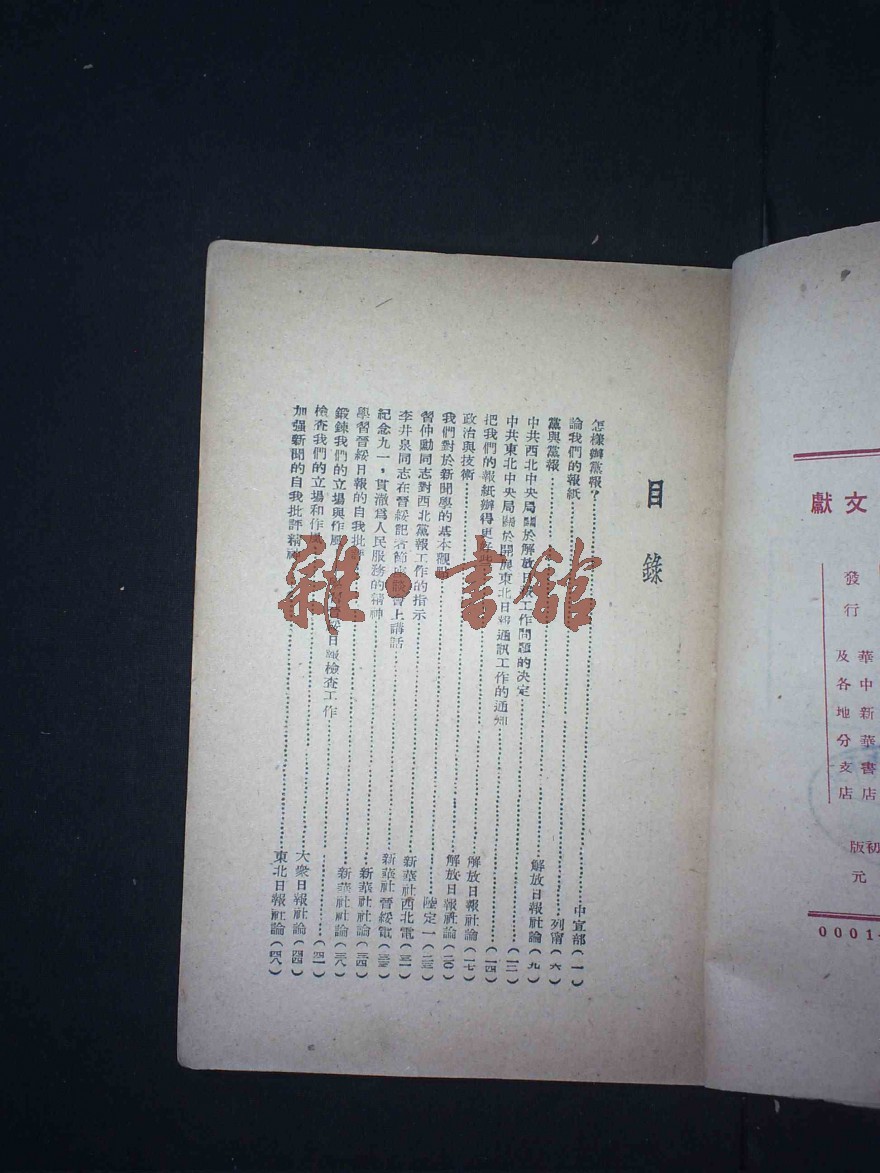 文獻
發行
華中新華書店
及各地分支店
初版
元
0001
目錄
怎樣辦黨報?……中宣部(一)
論我們的報紙……列甯(六)
黨與黨報……解放日報社論(九)
中共西北中央局關於解放日報工作問題的决定……(一二)
中共東北中央局關於開展東北日報通訊工作的通知……(一四)
把我們的報紙辦得更……解放日報社論(一七)
政治與技術……解放日報社論(二〇)
我們對於新聞學的基本觀點……陸定一(二三)
習仲勳同志對西北黨報工作的指示……新華社西北電(三一)
李井泉同志在晉綏記者節座談會上講話……新華社晉綏電(三三)
紀念九一,貫澈爲人民服務的精神……新華社社論(三四)
學習晉綏日報的自我批評……新華社社論(三八)
鍛鍊我們的立場與作風 晉綏日報檢查工作……(四一)
檢查我們的立場和作風……大衆日報社論(四四)
加强新聞的自我批評精神……東北日報社論(四八)
雜·書館